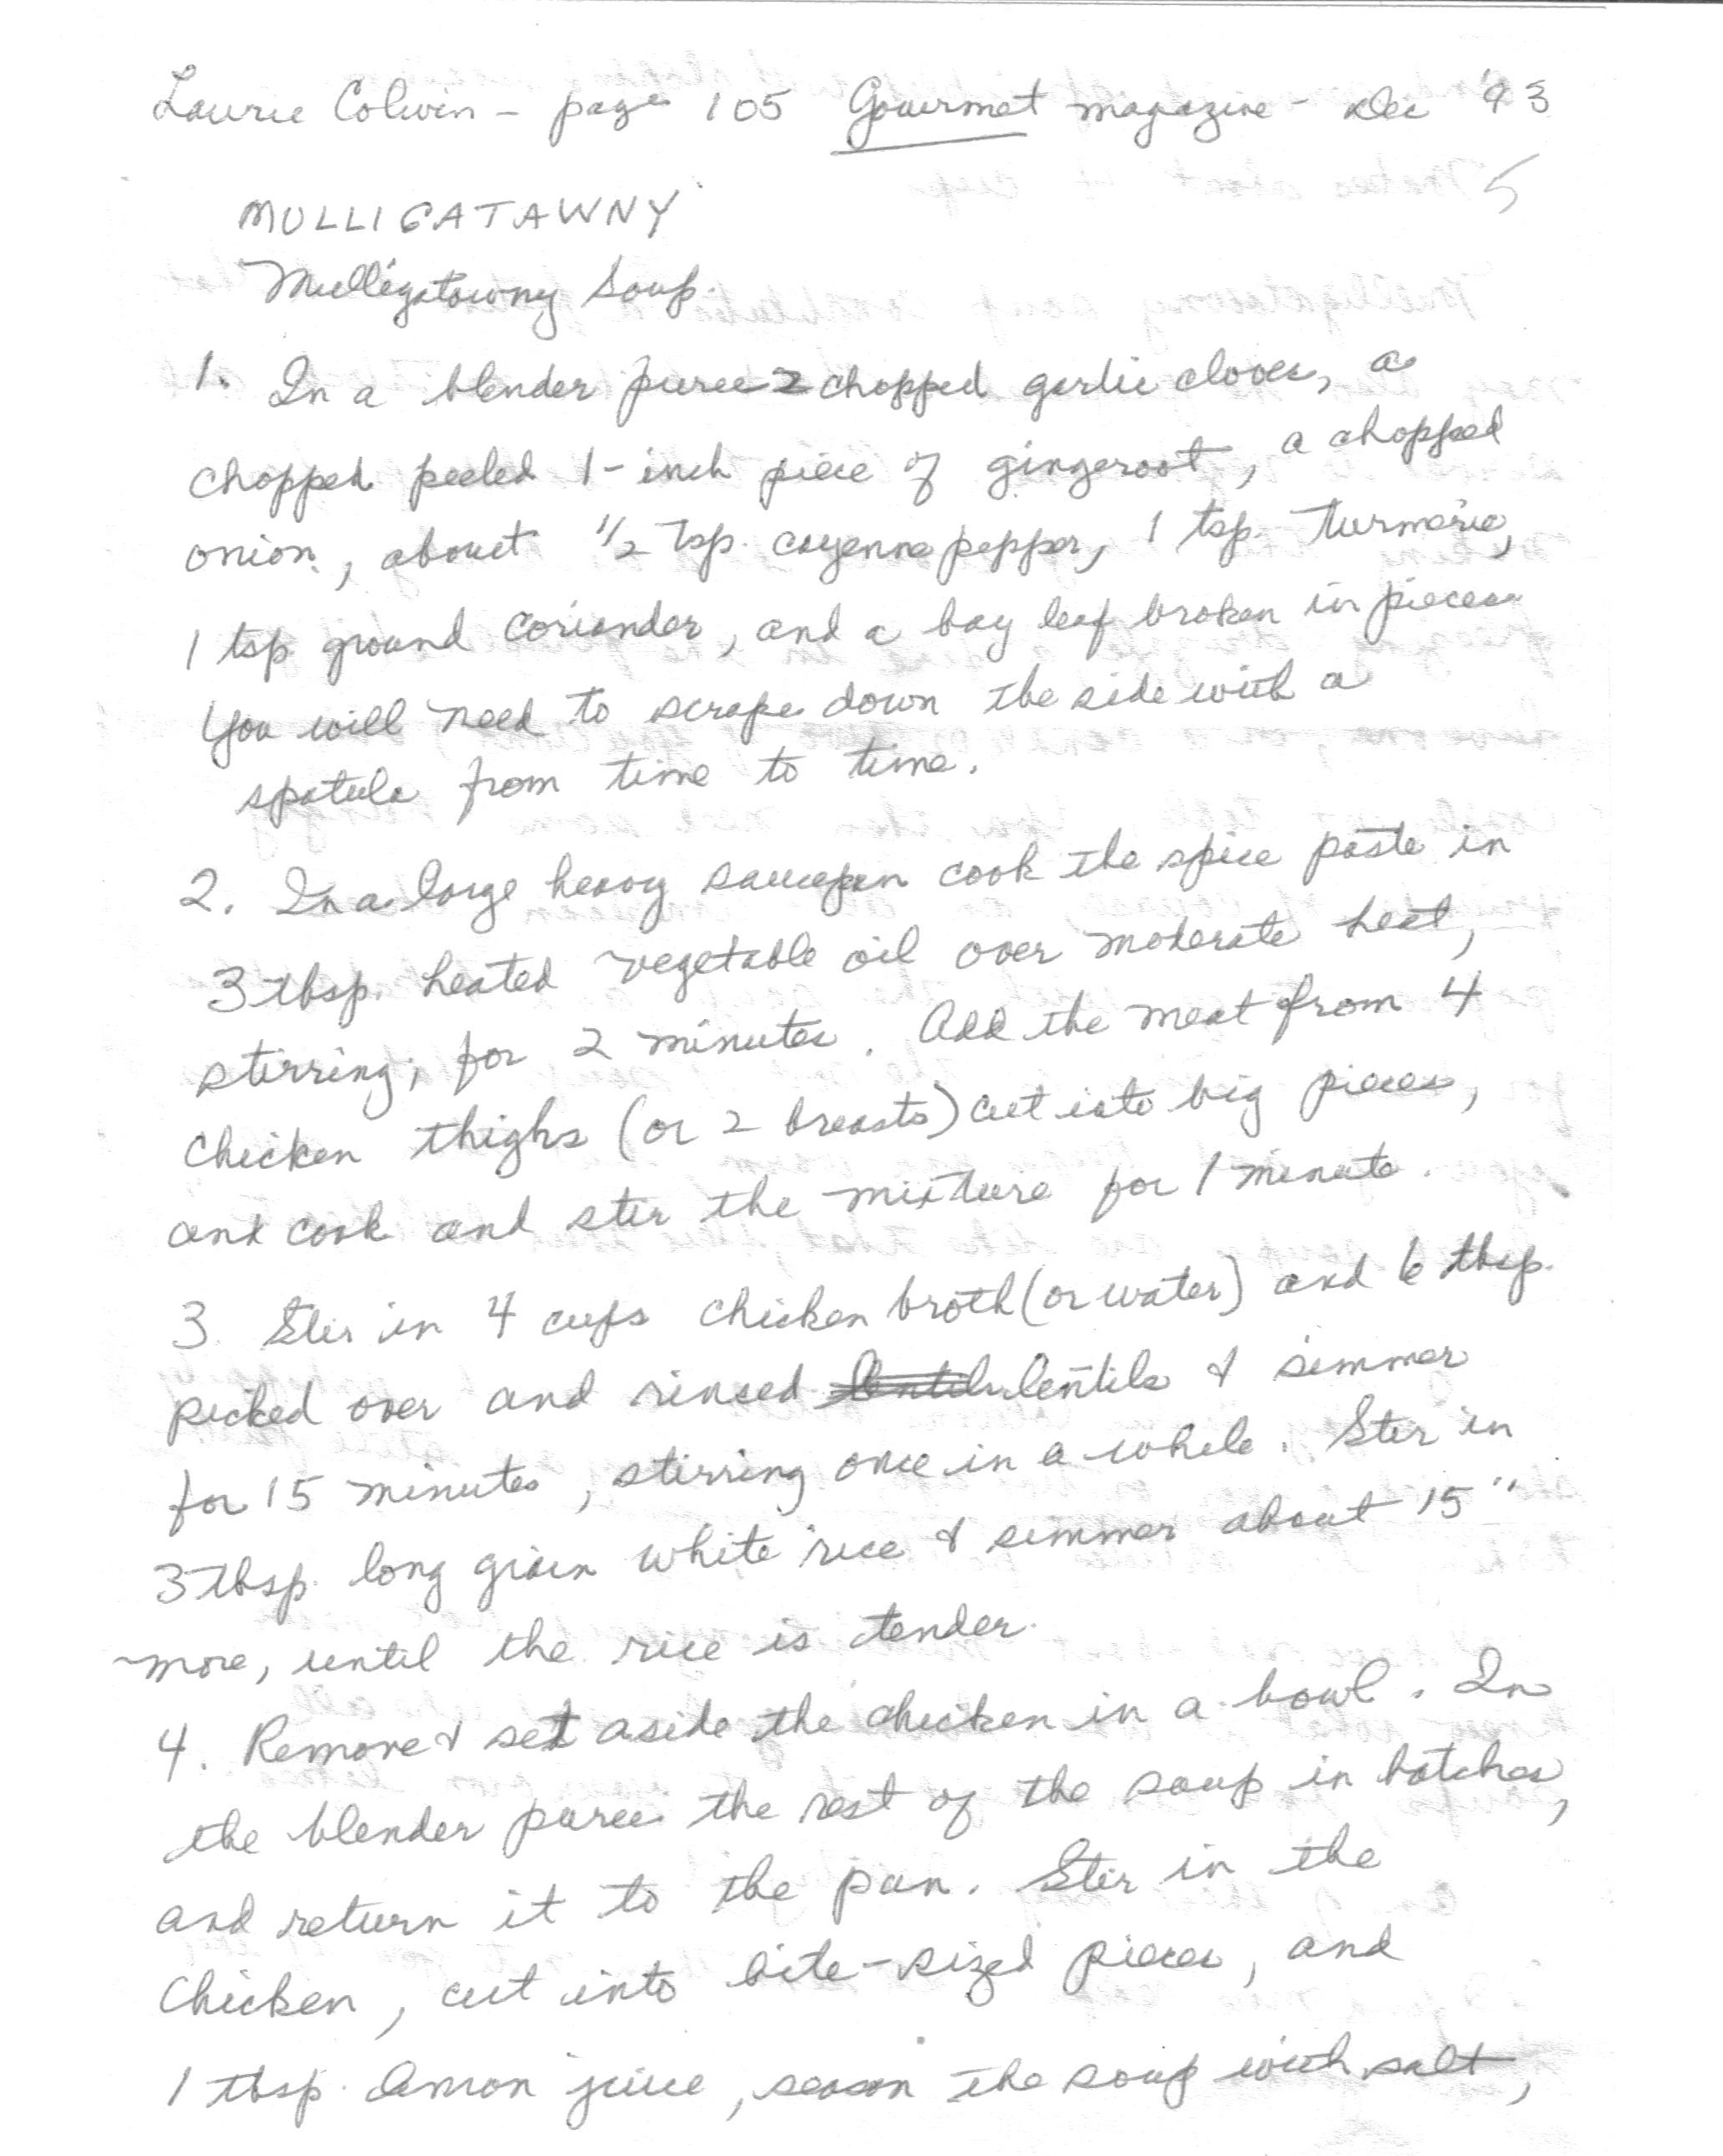 Laurie Colwin - page 105 Gourmet magazine - Dec '93
5
MULLIGATAWNY
Mulligatawny Soup.
1. In a blender puree 2 chopped garlic cloves, a
chopped peeled 1-inch piece of gingeroot, a chopped
onion, about 1/2 tsp. cayenne pepper, 1 tsp. turmeric,
1 tsp. ground coriander, and a bay leaf broken in pieces.
You will need to scrape down the side with a
spatula from time to time.
2. In a large heavy saucepan cook the spice paste in
3 tbsp. heated vegetable oil over moderate heat,
stirring, for 2 minutes. Add the meat from 4
chicken thighs (or 2 breasts) cut into big pieces,
and cook and stir the mixture for 1 minute.
3. Stir in 4 cups chicken broth (or water) and 6 tbsp.
picked over and rinsed lentils & simmer
for 15 minutes, stirring once in a while. Stir in
3 tbsp. long grain white rice & simmer about 15"
more, until the rice is tender.
4. Remove & set aside the chicken in a bowl. In
the blender puree the rest of the soup in batches,
and return it to the pan. Stir in the
chicken, cut into bite-sized pieces, and
1 tbsp. lemon juice, season the soup with salt,